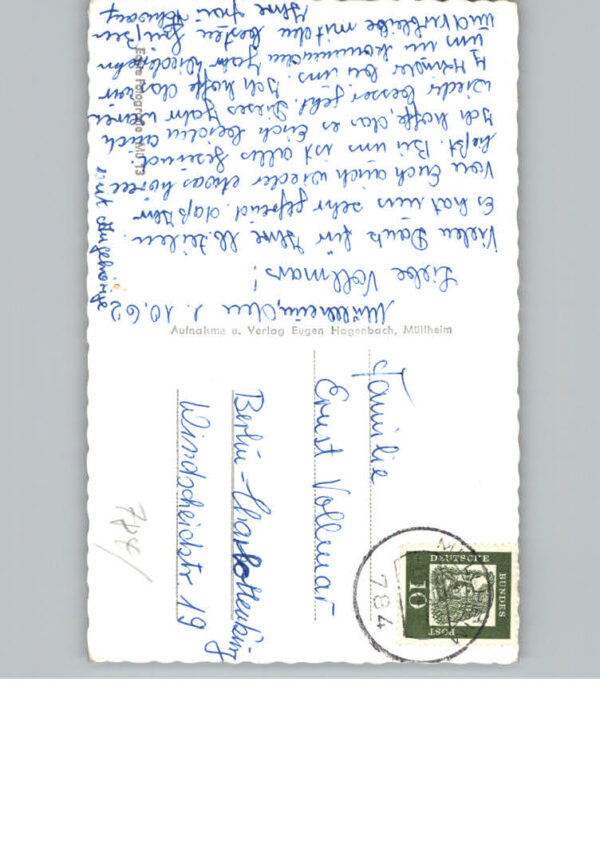 Müllheim, den 1.10.62
Liebe Vollmars!
Vielen Dank für Ihre lb. Zeilen.
Es hat uns sehr gefreut daß wir
von Euch auch wieder etwas hören
ließt. Bei uns ist alles gesund.
Ich hoffe, das es Euch beiden auch
wieder besser geht. Dieses Jahr waren
4 Häusler bei uns. Ich hoffe das wir
uns im kommenden Jahr wiedersehn
und verbleibe mit den besten Grüßen
Ihre Frau
und Angehörige
Echte Fotografie
Aufnahme u. Verlag Eugen Hagenbach, Müllheim
Familie
Ernst Vollmar
Berlin-Charlottenburg
Windscheidstr 19
784/
784
DEUTSCHE
BUNDES
POST
10